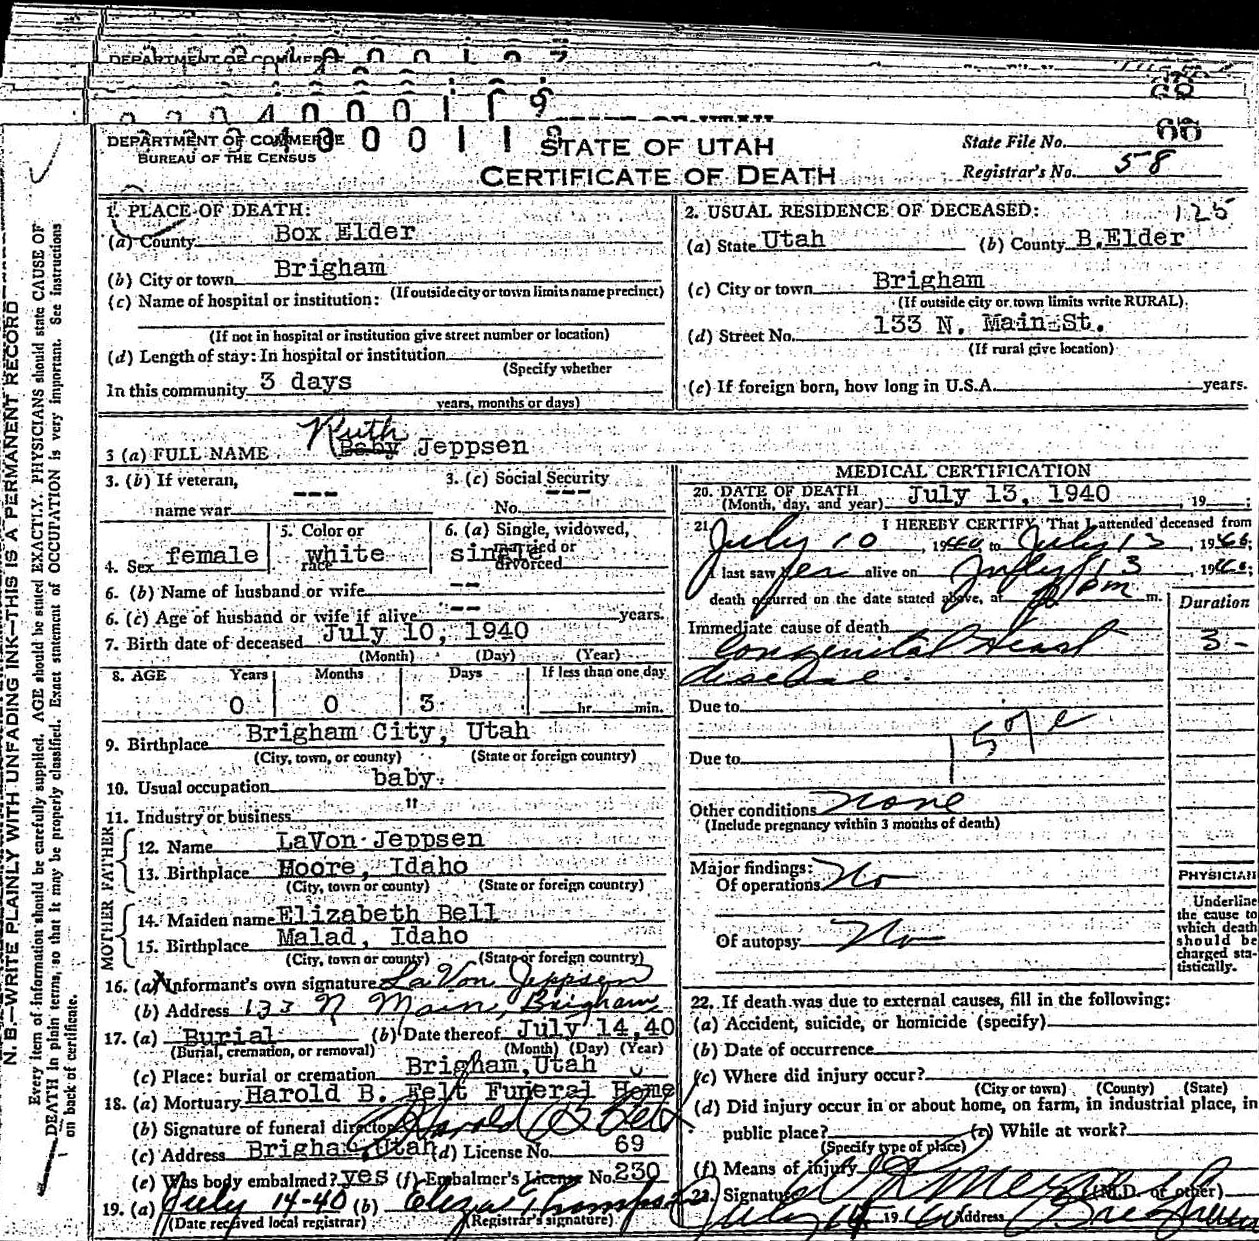 DEPARTMENT OF COMMERCE
BUREAU OF THE CENSUS
STATE OF UTAH
CERTIFICATE OF DEATH
State File No. 66
Registrar's No. 58
125
N. B.—WRITE PLAINLY WITH UNFADING INK—THIS IS A PERMANENT RECORD
Every item of information should be carefully supplied. AGE should be stated EXACTLY. PHYSICIANS should state CAUSE OF
DEATH in plain terms, so that it may be properly classified. Exact statement of OCCUPATION is very important. See instructions
on back of certificate.
1. PLACE OF DEATH:
(a) County Box Elder
(b) City or town Brigham
(If outside city or town limits name precinct)
(c) Name of hospital or institution:
(If not in hospital or institution give street number or location)
(d) Length of stay: In hospital or institution
(Specify whether
In this community 3 days
years, months or days)
2. USUAL RESIDENCE OF DECEASED:
(a) State Utah (b) County B.Elder
(c) City or town Brigham
(If outside city or town limits write RURAL)
(d) Street No. 133 N. Main St.
(If rural give location)
(e) If foreign born, how long in U.S.A. years.
3 (a) FULL NAME Ruth Baby Jeppsen
3. (b) If veteran, name war ---
3. (c) Social Security No. ---
4. Sex female
5. Color or race white
6. (a) Single, widowed, married or divorced single
6. (b) Name of husband or wife --
6. (c) Age of husband or wife if alive -- years.
7. Birth date of deceased July 10, 1940
(Month) (Day) (Year)
8. AGE Years Months Days If less than one day
0 0 3 hr. min.
9. Birthplace Brigham City, Utah
(City, town, or county) (State or foreign country)
10. Usual occupation baby
11. Industry or business "
FATHER
12. Name LaVon Jeppsen
13. Birthplace Moore, Idaho
(City, town or county) (State or foreign country)
MOTHER
14. Maiden name Elizabeth Bell
15. Birthplace Malad, Idaho
(City, town or county) (State or foreign country)
16. (a) Informant's own signature LaVon Jeppsen
(b) Address 133 N Main, Brigham
17. (a) Burial (b) Date thereof July 14,40
(Burial, cremation, or removal) (Month) (Day) (Year)
(c) Place: burial or cremation Brigham, Utah
18. (a) Mortuary Harold B. Felt Funeral Home
(b) Signature of funeral director Harold B Felt
(c) Address Brigham, Utah (d) License No. 69
(e) Was body embalmed? yes (f) Embalmer's License No. 230
19. (a) July 14-40 (b) Eliza Thompson
(Date received local registrar) (Registrar's signature)
MEDICAL CERTIFICATION
20. DATE OF DEATH July 13, 1940, 19 ;
(Month, day, and year)
21. I HEREBY CERTIFY, That I attended deceased from
July 10, 1940 to July 13, 1940;
I last saw her alive on July 13, 1940;
death occurred on the date stated above, at pm m.
Duration
Immediate cause of death
Congenital Heart 3-
disease
Due to
157e
Due to
Other conditions none
(Include pregnancy within 3 months of death)
Major findings:
Of operations No
Of autopsy No
PHYSICIAN
Underline
the cause to
which death
should be
charged sta-
tistically.
22. If death was due to external causes, fill in the following:
(a) Accident, suicide, or homicide (specify)
(b) Date of occurrence
(c) Where did injury occur?
(City or town) (County) (State)
(d) Did injury occur in or about home, on farm, in industrial place, in
public place? (e) While at work?
(Specify type of place)
(f) Means of injury
23. Signature (M.D. or other)
July 14, 1940 Address